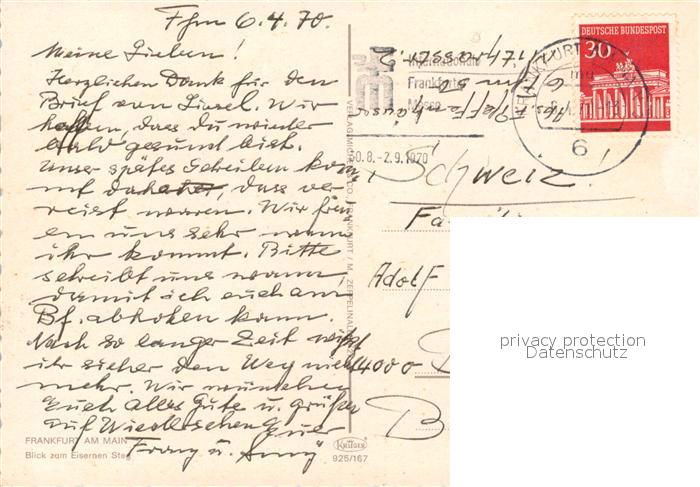 Ffm 6.4.70.
Meine Lieben!
Herzlichen Dank für den
Brief von Liesel. Wir
hoffen, dass du wieder
bald gesund bist.
Unser spätes Schreiben kom
mt daher, dass ver
reist waren. Wir freu
en uns sehr wenn
ihr kommt. Bitte
schreibt uns wann
damit ich euch am
Bf. abholen kann.
Nach so langer Zeit wisst
ihr sicher den Weg nicht
mehr. Wir wünschen
Euch alles Gute u. grüßen
auf Wiedersehen Euer
Franz u.
FRANKFURT AM MAIN
Blick zum Eisernen Steg
KRÜGER
925/167
FRANKFURT / M. ZEPPELINALLEE
Internationale
Frankfurter
Messe
30.8.-2.9.1970
FRANKFURT
6
DEUTSCHE BUNDESPOST
30
Abs.
Schweiz!
Fa
Adolf
4000
B
privacy protection
Datenschutz